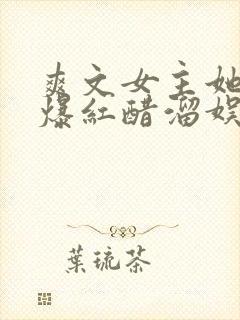 爽文女主她
爆紅醋溜娛
葉琉茶